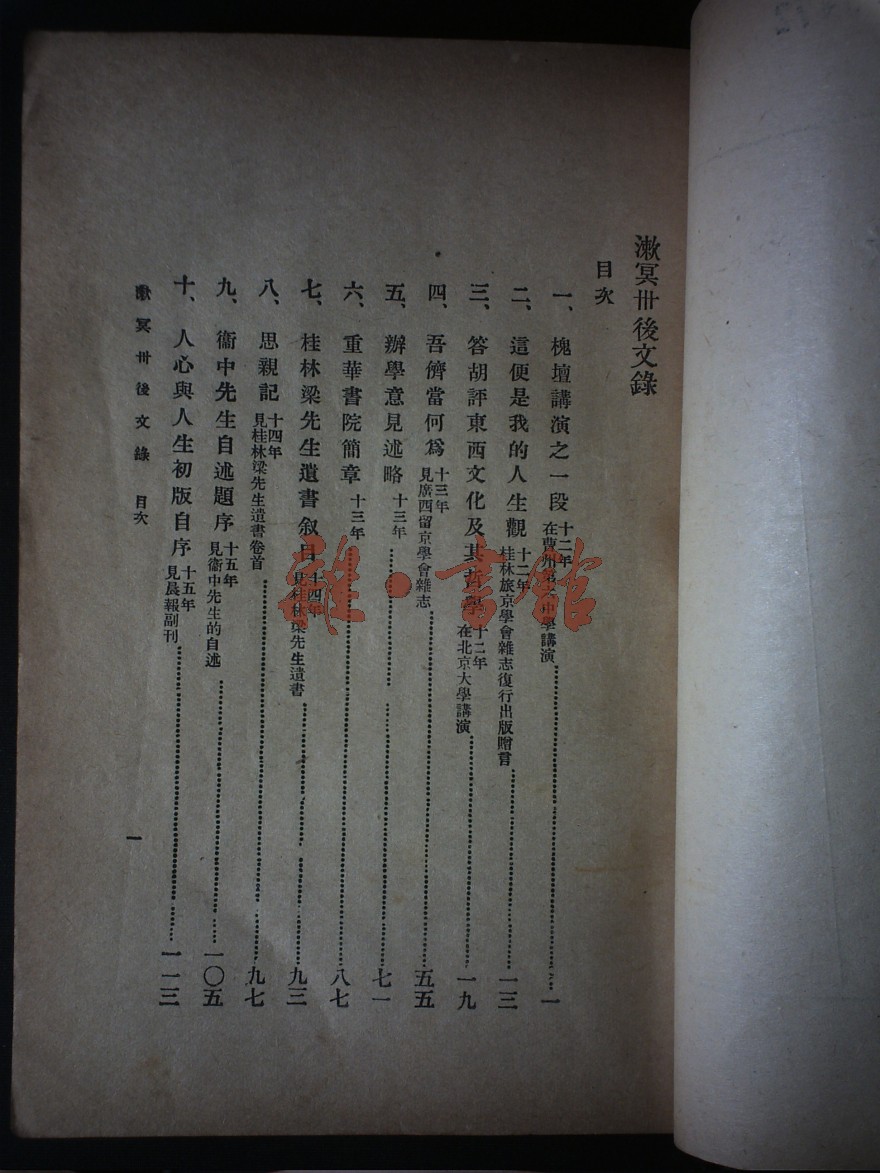 漱冥卅後文錄
目次
一、槐壇講演之一段 十二年 在曹州第六中學講演 一
二、這便是我的人生觀 十二年 桂林旅京學會雜志復行出版贈言 一三
三、答胡評東西文化及其哲學 十二年 在北京大學講演 一九
四、吾儕當何爲 十三年 見廣西留京學會雜志 五五
五、辦學意見述略 十三年 七一
六、重華書院簡章 十三年 八七
七、桂林梁先生遺書叙目 十四年 見桂林梁先生遺書 九三
八、思親記 十四年 見桂林梁先生遺書卷首 九七
九、衞中先生自述題序 十五年 見衞中先生的自述 一〇五
十、人心與人生初版自序 十五年 見晨報副刊 一一三
漱冥卅後文錄 目次
一
雜·書館